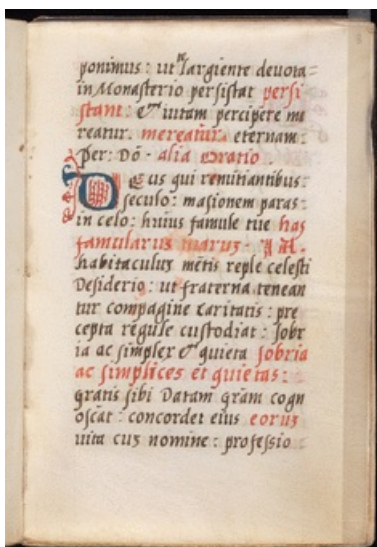 ponimus : ut te largiente deuota=
in Monasterio persistat persi
stant : & uitam percipere me
reatur. mereatur. eternam :
Per : Dō · alia Oratio
Deus qui renutiantibus :
seculo : masionem paras :
in celo : huius famule tue has
famularus tuarus · N N.
habitaculus mētis reple celesti
Desiderio : ut fraterna tenean
tur compagine caritatis : pre
cepta regule custodiat : sobr
ia ac simplex & quieta sobria
ac simplices et quietas :
gratis sibi Datam grām cogn
oscat : concordet eius eorus
uita cus nomine : professio